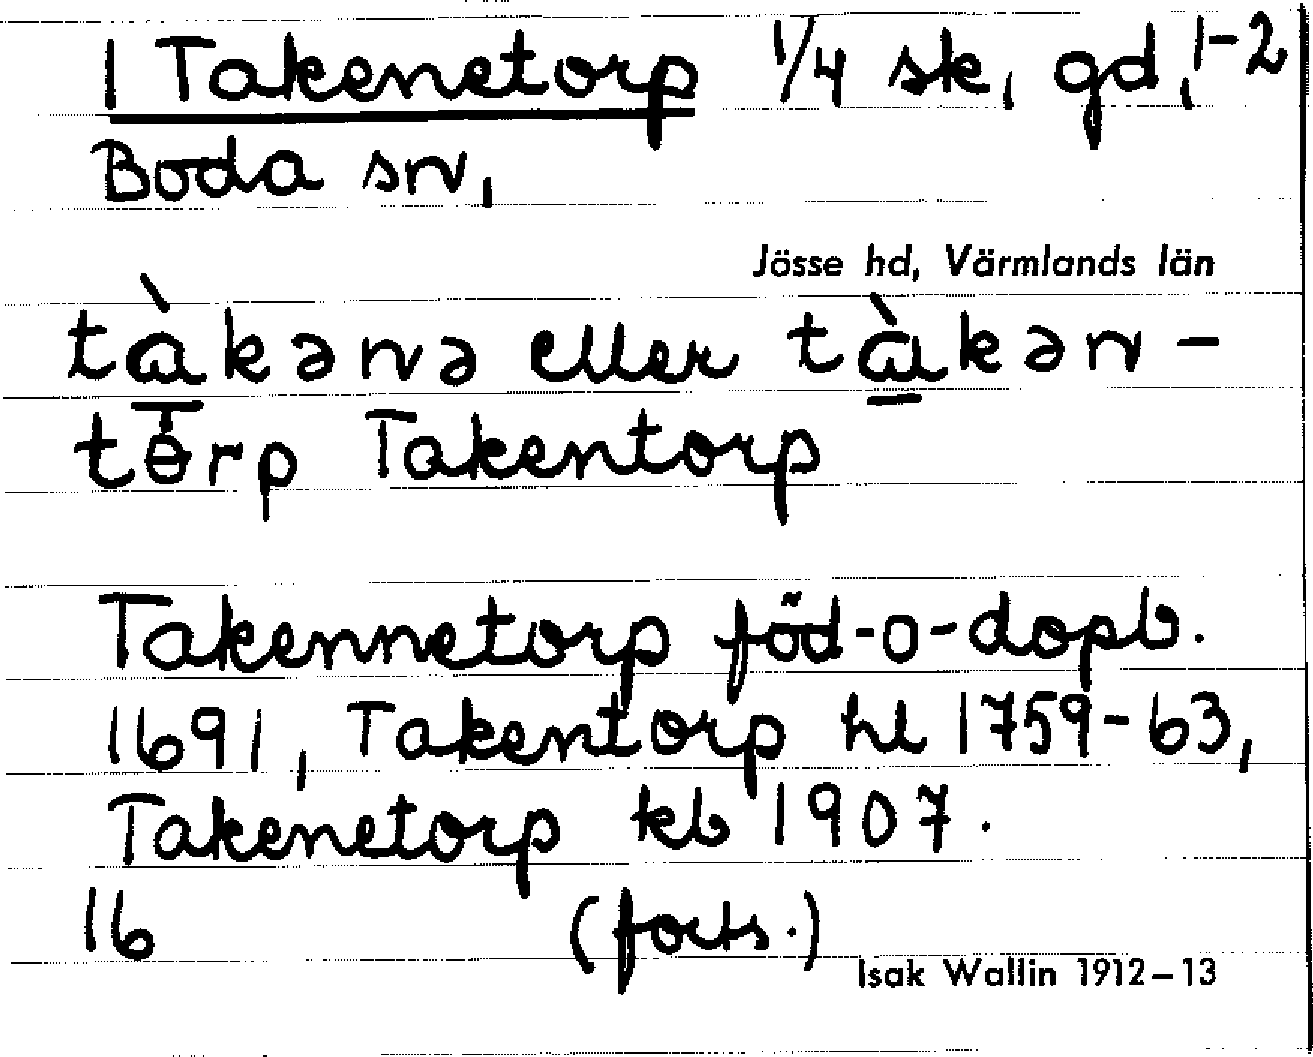 1 Takenetorp 1/4 sk, gd, 1-2
Boda sn,
Jösse hd, Värmlands län
tàkənə eller tàkən-
tɵ̄rp Takentorp
Takennetorp föd-o-dopb.
1691, Takentorp hl 1759-63,
Takenetorp kb 1907.
16 (forts.)
Isak Wallin 1912-13